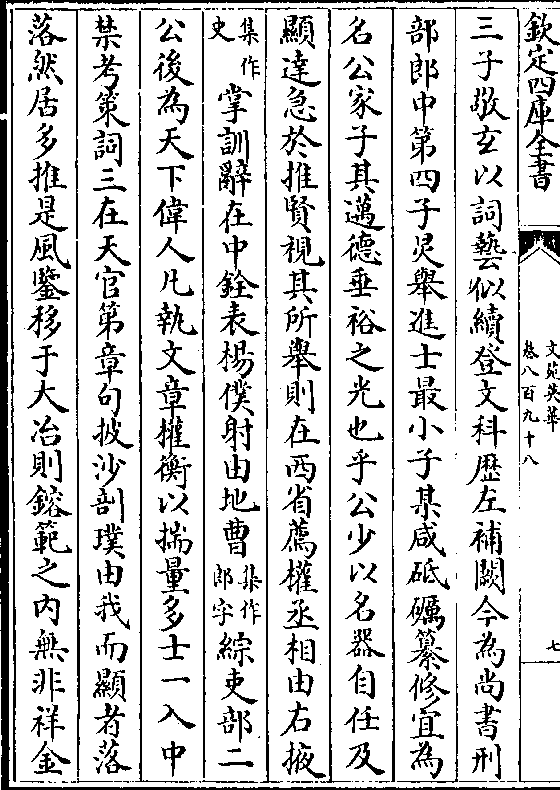 欽定四庫全書
文苑英華
卷八百九十八
七
三子敬玄以詞藝似續登文科歴左補闕今為尚書刑
部郎中第四子炅舉進士最小子某咸砥礪纂修宜為
名公家子其邁德垂裕之光也乎公少以名器自任及
顯達急於推賢視其所舉則在西省薦權丞相由右掖
集作
吏
掌訓辭在中銓表楊僕射由地曹
集作
郎字
綜吏部二
公後為天下偉人凡執文章權衡以揣量多士一入中
禁考策詞三在天官第章句披沙剖璞由我而顯者落
落然居多推是風鑒移于大冶則鎔範之内無非祥金